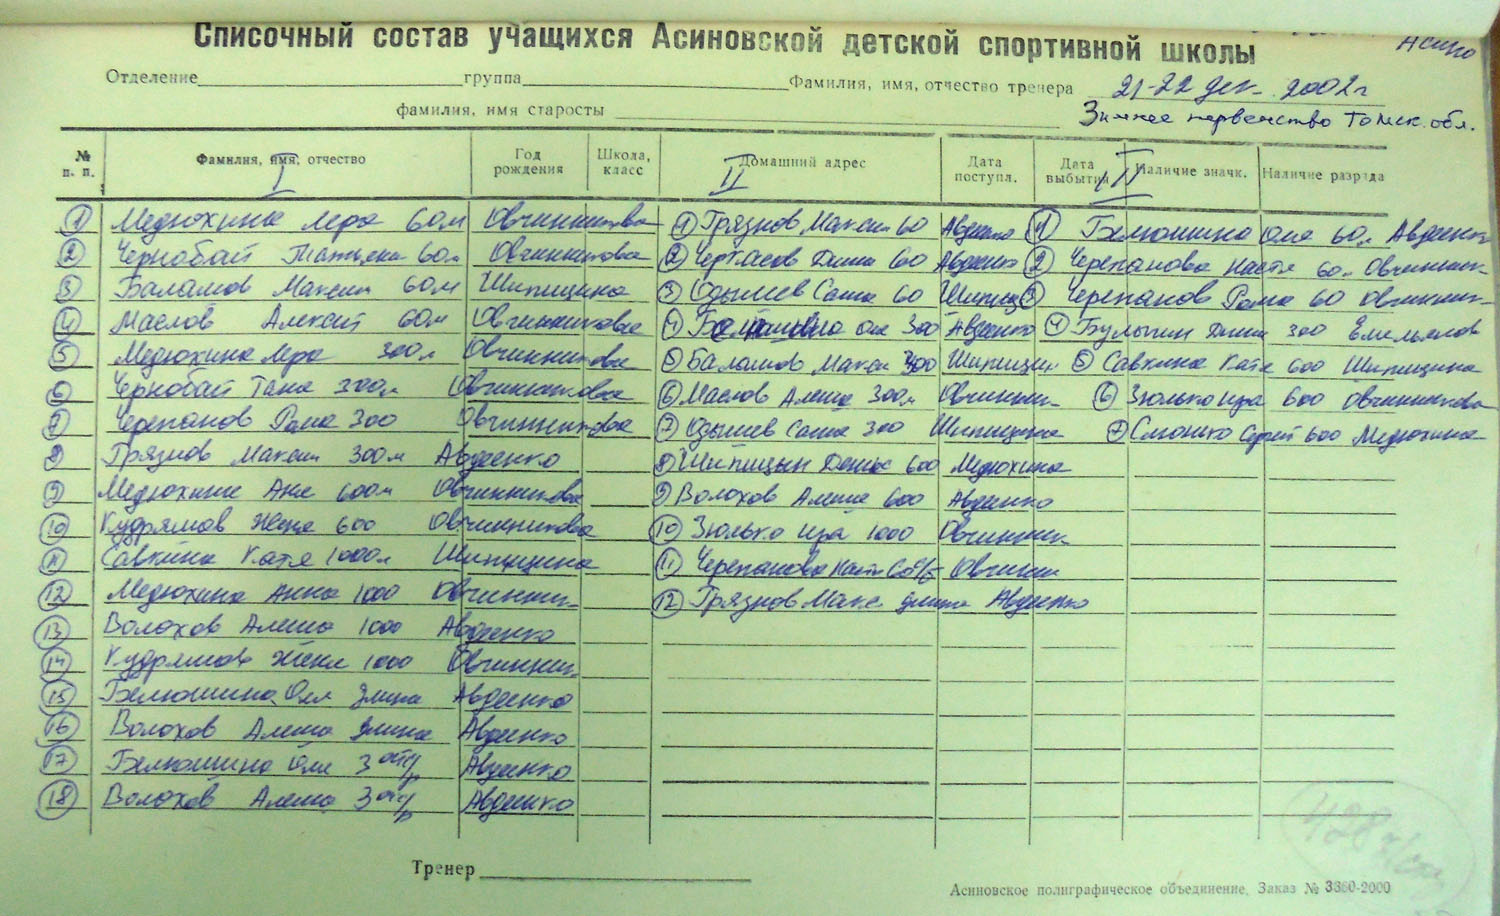 Асино
Списочный состав учащихся Асиновской детской спортивной школы
Отделение группа Фамилия, имя, отчество тренера 21-22 дек. 2002г
фамилия, имя старосты Зимнее первенство Томск. обл.
№ п. п. Фамилия, имя, отчество Год рождения Школа, класс Домашний адрес Дата поступл. Дата выбытия Наличие значк. Наличие разряда
I II III
1 Медюхина Лера 60м Овчинникова 1 Грязнов Максим 60 Авдеенко 1 Белюшина Оля 60м Авдеенко
2 Чернобай Татьяна 60м Овчинникова 2 Черкасов Дима 60 Авдеенко 2 Черепанова Настя 60м Овчинник-
3 Баламов Максим 60м Шипицина 3 Одышев Саша 60 Шипиц 3 Черепанов Рома 60 Овчинник-
4 Маслов Алексей 60м Овчинникова 4 Оля 300 Авдеенко 4 Булыгин Дима 300 Емельянов
5 Медюхина Лера 300м Овчинникова 5 Баламов Макси 300 Шипицин 5 Савкина Катя 600 Шипицина
6 Чернобай Таня 300м Овчинникова 6 Маслов Алеша 300м Овчинник- 6 Зюлько Ира 600 Овчинникова
7 Черепанов Рома 300 Овчинникова 7 Одышев Саша 300 Шипицина 7 Сергей 600 Медюхина
8 Грязнов Максим 300м Авдеенко 8 Шипицын Денис 600 Медюхина
9 Медюхина Аня 600м Овчинникова 9 Волохов Алеша 600 Авдеенко
10 Кудряшов Женя 600 Овчинникова 10 Зюлько Ира 1000 Овчинник
11 Савкина Катя 1000м Шипицина 11 Черепанова Настя 60 с/б Овчинни
12 Медюхина Анна 1000 Овчинни- 12 Грязнов Макс. длина Авдеенко
13 Волохов Алеша 1000 Авдеенко
14 Кудряшов Женя 1000 Овчинник-
15 Белюшина Оля длина Авдеенко
16 Волохов Алеша длина Авдеенко
17 Белюшина Оля 3 Авдеенко
18 Волохов Алеша 3 Авдеенко
Тренер
Асиновское полиграфическое объединение. Заказ № 3360-2000
428